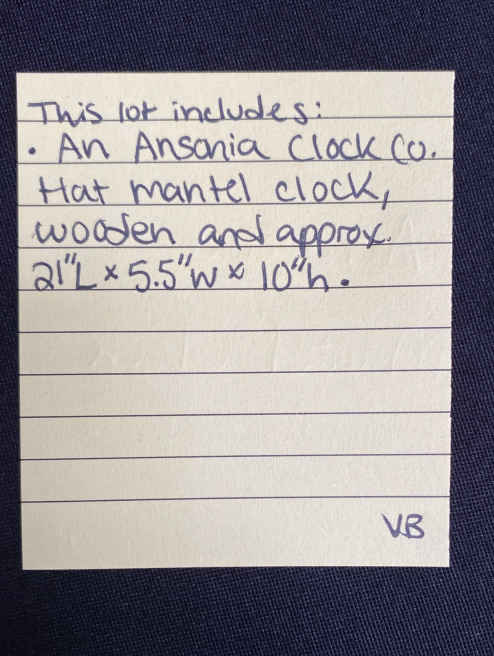 This lot includes:
• An Ansonia Clock Co.
Hat mantel clock,
wooden and approx.
21"L x 5.5"W x 10"h.
VB